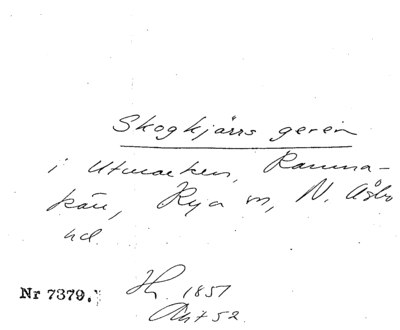 Skogkjärrs geren
i Utmarken, Ramna-
kärr, Rya sn, N. Åsbo
hd.
Nr 7379. Hr. 1851
Akt 52.